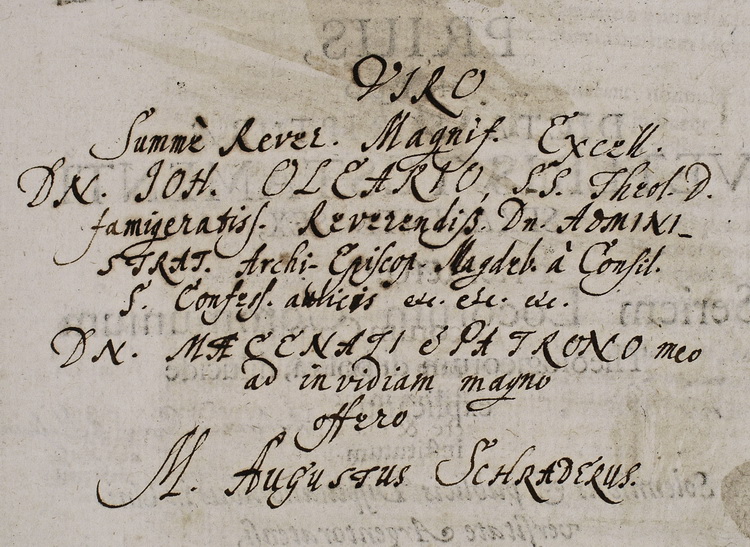 VIRO.
Summè Rever. Magnif. Excell.
DN. IOH. OLEARIO, S.S. Theol. D.
famigeratiss. Reverendiß. Dn. ADMINI_
STRAT. Archi-Episcop. Magdeb. à Consil.
S. Confess. aulicis etc. etc. etc.
DN. MÆCENATI & PATRONO meo
ad invidiam magno
offero
M. AUGUSTUS SCHRADERUS.